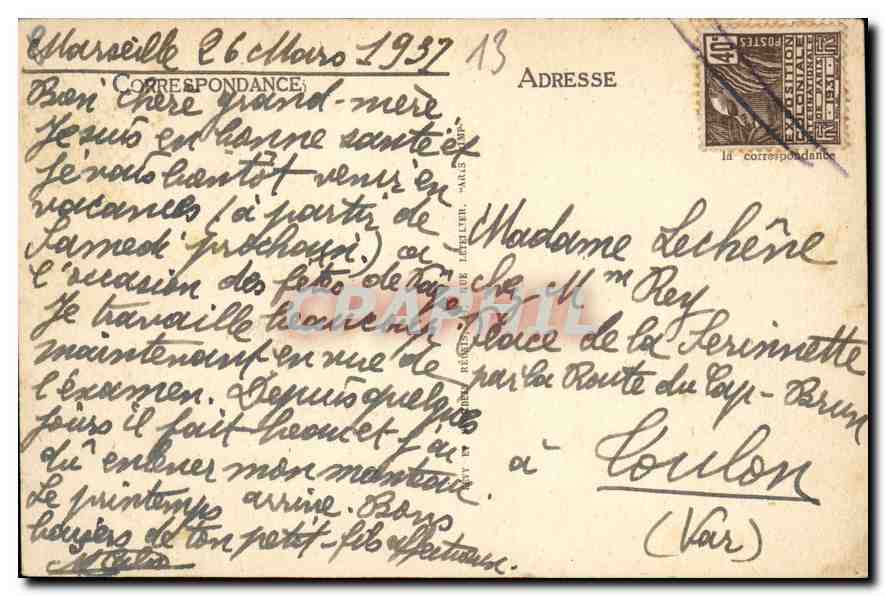 Marseille 26 Mars 1931
13
CORRESPONDANCE
Bien chère grand-mère
Je suis en bonne santé et
je vais bientôt venir en
vacances (à partir de
Samedi prochain) à
l'occasion des fêtes de Pâques.
Je travaille beaucoup
maintenant en vue de
l'examen. Depuis quelques
jours il fait beau et j'ai
dû enlever mon manteau.
Le printemps arrive. Bons
baisers de ton petit-fils affectueux.
LEVY ET NEURDEIN RÉUNIS, RUE LETELLIER, PARIS IMP.
ADRESSE
40c
POSTES
EXPOSITION
COLONIALE
INTERNATIONALE
DE PARIS
1931
la correspondance
Madame Lechêne
chez Mme Rey
Place de la Serinnette
par la Route du Cap-Brun
à Toulon
(Var)
CPAPHIL